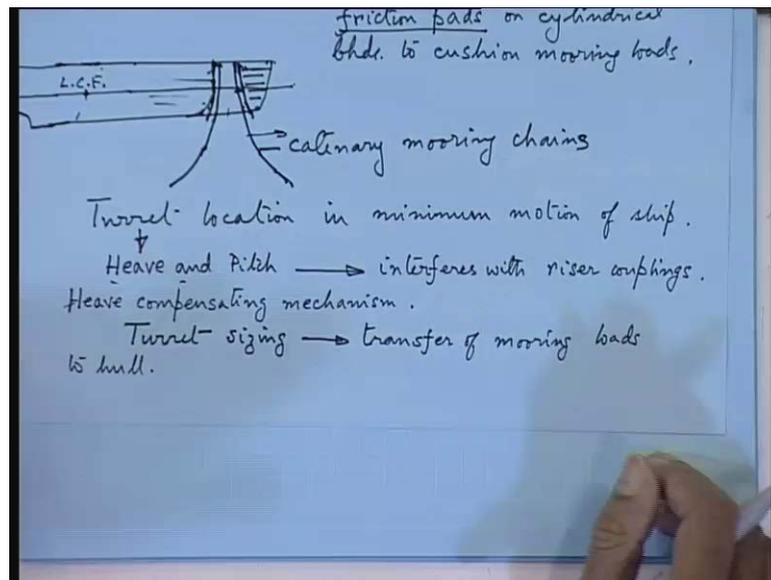 friction pads on cylindrical
bhds. to cushion mooring loads.
L.C.F.
catenary mooring chains
Turret location in minimum motion of ship.
Heave and Pitch → interferes with riser couplings.
Heave compensating mechanism.
Turret sizing → transfer of mooring loads
to hull.